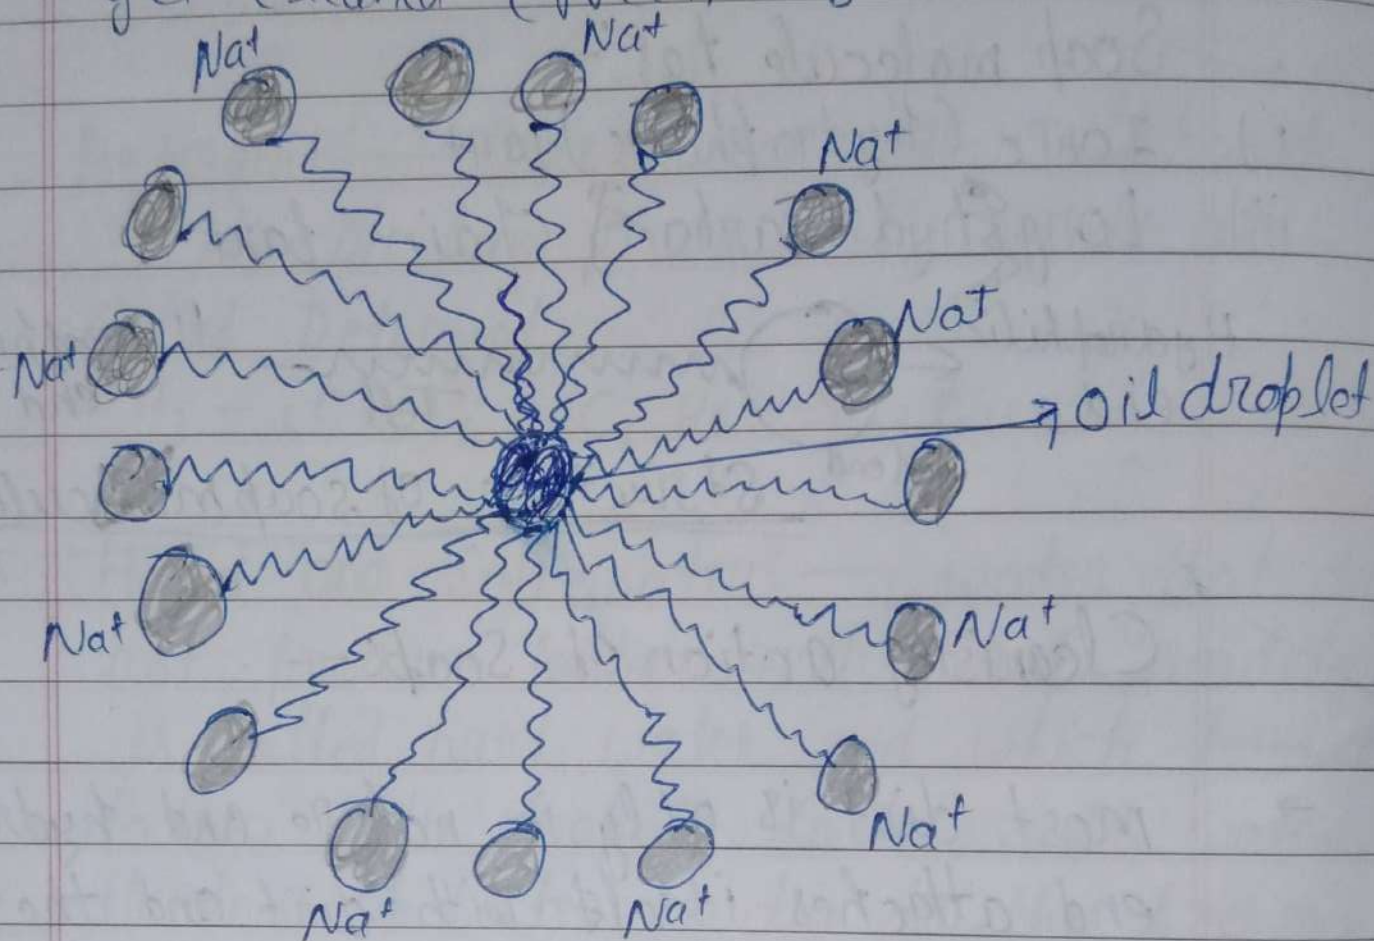 Na+
Na+
Na+
Na+
Na+
Oil droplet
Na+
Na+
Na+
Na+
Na+